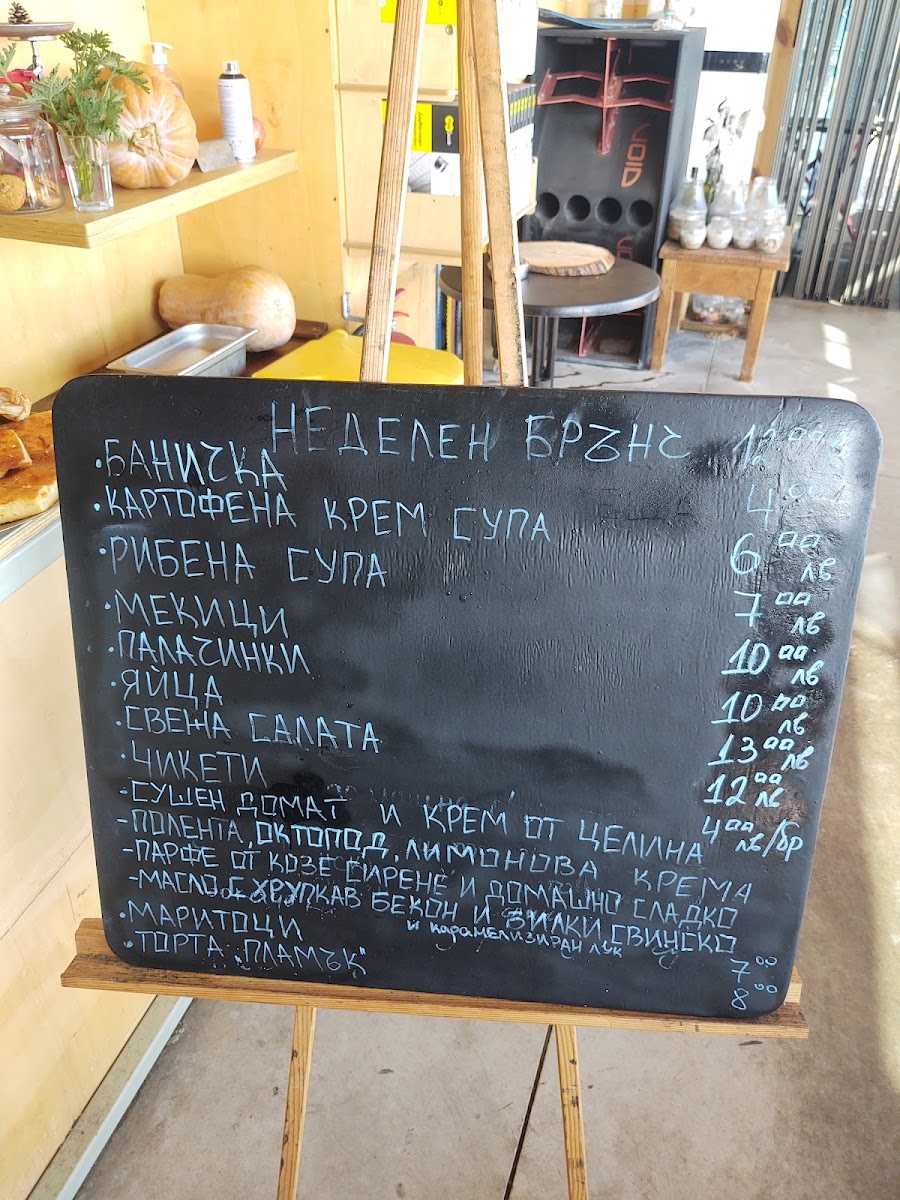 НЕДЕЛЕН БРЪНЧ
•БАНИЧКА 4⁰⁰
•КАРТОФЕНА КРЕМ СУПА 6⁰⁰ лв
•РИБЕНА СУПА 7⁰⁰ лв
•МЕКИЦИ 10⁰⁰ лв
•ПАЛАЧИНКИ 10⁰⁰ лв
•ЯЙЦА 13⁰⁰ лв
•СВЕЖА САЛАТА 12⁰⁰ лв
•ЧИКЕТИ 4⁰⁰ лв/бр
-СУШЕН ДОМАТ И КРЕМ ОТ ЦЕЛИНА
-ПОЛЕНТА, ОКТОПОД, ЛИМОНОВА КРЕМА
-ПАРФЕ ОТ КОЗЕ СИРЕНЕ И ДОМАШНО СЛАДКО
-МАСЛО С ХРУПКАВ БЕКОН И БИЛКИ, СВИНСКО
и карамелизиран лук
•МАРИТОЦИ 7⁰⁰
•ТОРТА „ПЛАМЪК" 8⁰⁰